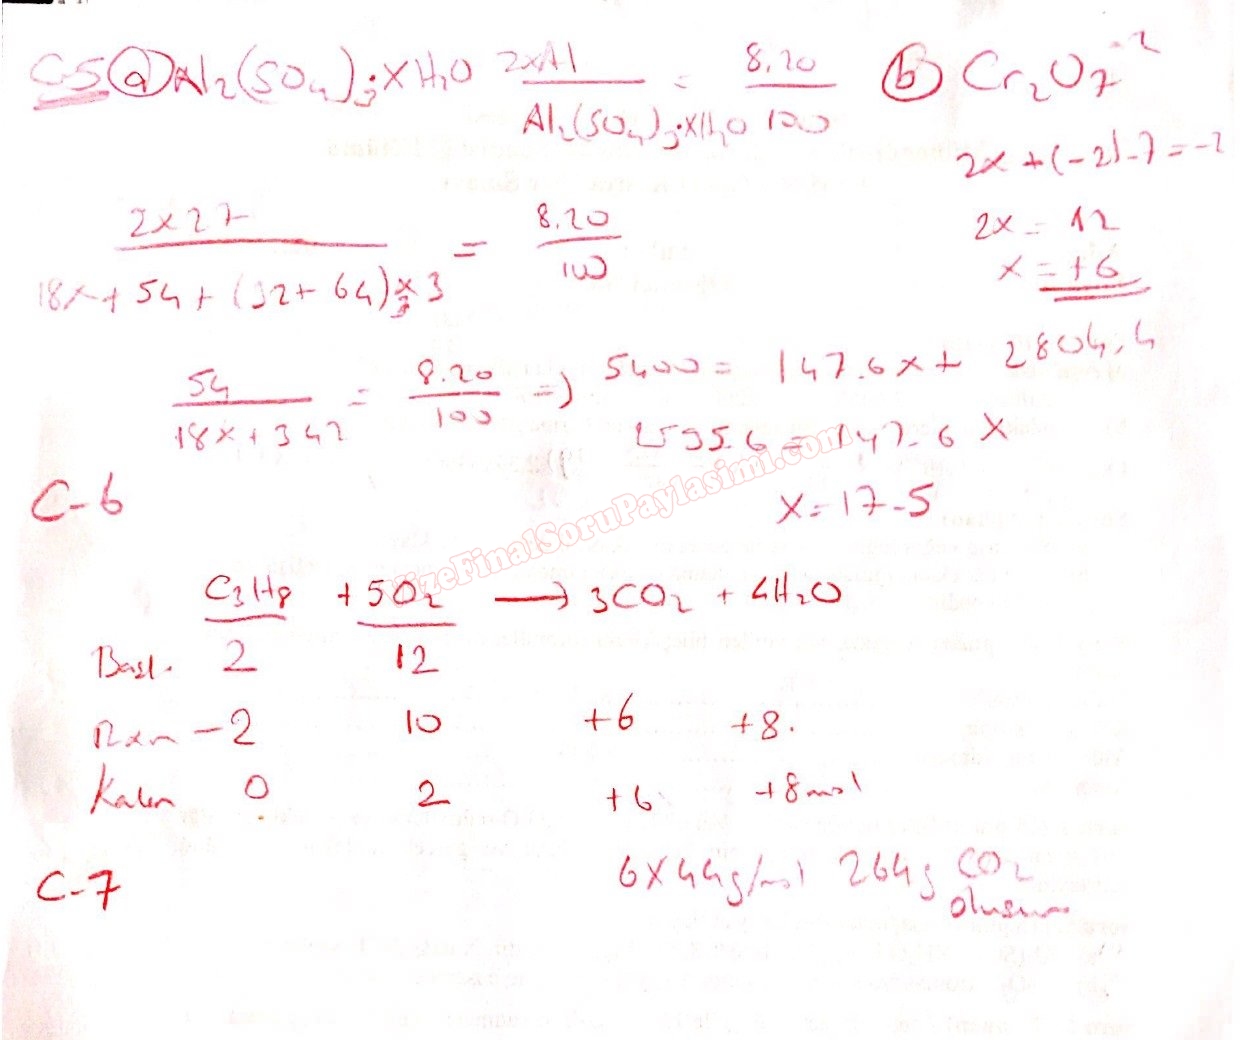 C-5 a) Al2(SO4)3·XH2O 2xAl / Al2(SO4)3·XH2O = 8.20 / 100
b) Cr2O7^-2
2x + (-2)·7 = -2
2x = 12
x = +6
2x27 / 18x + 54 + (32 + 64) x 3 = 8.20 / 100
54 / 18x + 342 = 8.20 / 100 => 5400 = 147.6x + 2804,4
25956 = 147.6 X
X = 17.5
VizeFinalSoruPaylasimi.com
C-6
C3H8 + 5O2 → 3CO2 + 4H2O
Başl. 2 12
Rxn -2 10 +6 +8.
Kalan 0 2 +6 +8 mol
6x44g/mol 264g CO2
C-7